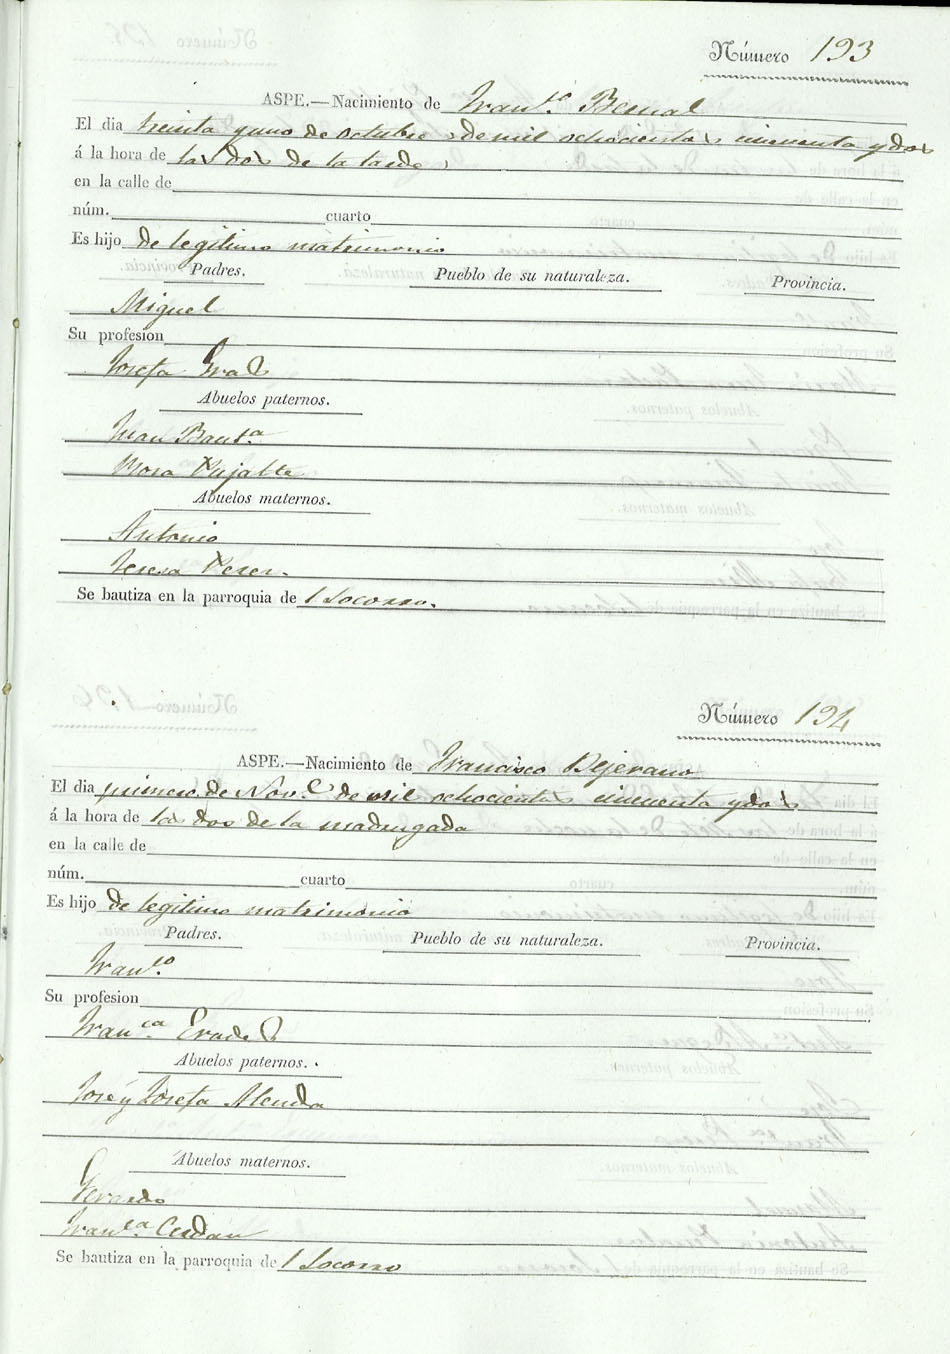 Número 193
ASPE.—Nacimiento de Fran.co Bernal
El dia treinta y uno de octubre de mil ochocientos cincuenta y dos
á la hora de las dos de la tarde
en la calle de
núm. cuarto
Es hijo de legitimo matrimonio
Padres. Pueblo de su naturaleza. Provincia.
Miguel
Su profesion
Josefa
Abuelos paternos.
Juan Baut.a
Rosa Pujalte
Abuelos maternos.
Antonio
Teresa Perez.
Se bautiza en la parroquia de l Socorro.
Número 194
ASPE.—Nacimiento de Francisco Bejerano
El dia primero de Nov.e de mil ochocientos cincuenta y dos
á la hora de las dos de la madrugada
en la calle de
núm. cuarto
Es hijo de legitimo matrimonio
Padres. Pueblo de su naturaleza. Provincia.
Fran.co
Su profesion
Fran.ca
Abuelos paternos.
José y Josefa Alenda
Abuelos maternos.
Gerardo
Fran.ca Cerdan
Se bautiza en la parroquia de l Socorro